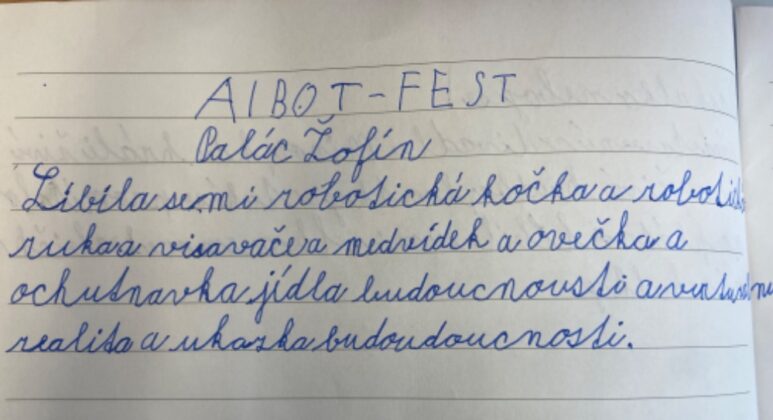 AIBOT-FEST
Palác Žofín
Líbila se mi robotická kočka a robotická
ruka a visavače a medvídek a ovečka a
ochutnavka jídla budoucnousti a
realita a ukazka budoudoucnosti.